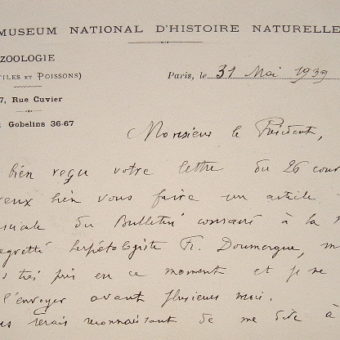 MUSEUM NATIONAL D'HISTOIRE NATURELLE
ZOOLOGIE
TILES ET POISSONS)
Paris, le 31 Mai 1939
7, Rue Cuvier
Gobelins 36-67
Monsieur le Président,
bien reçu votre lettre du 26 cour
veux bien vous faire un article
du Bulletin consacré à la
regretté herpétologiste Fr. Doumergue, m
très pris en ce moment et je ne
l'envoyer avant plusieurs mois.
serais reconnaissant de me dire à